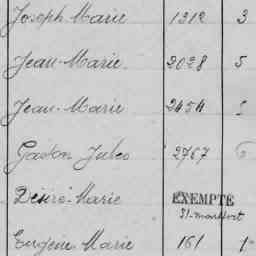 Joseph Marie 1312 3
Jean-Marie 2028 5
Jean-Marie 2454 5
Gaston Jules 2767
Désiré-Marie EXEMPTÉ
Eugène Marie 161 1